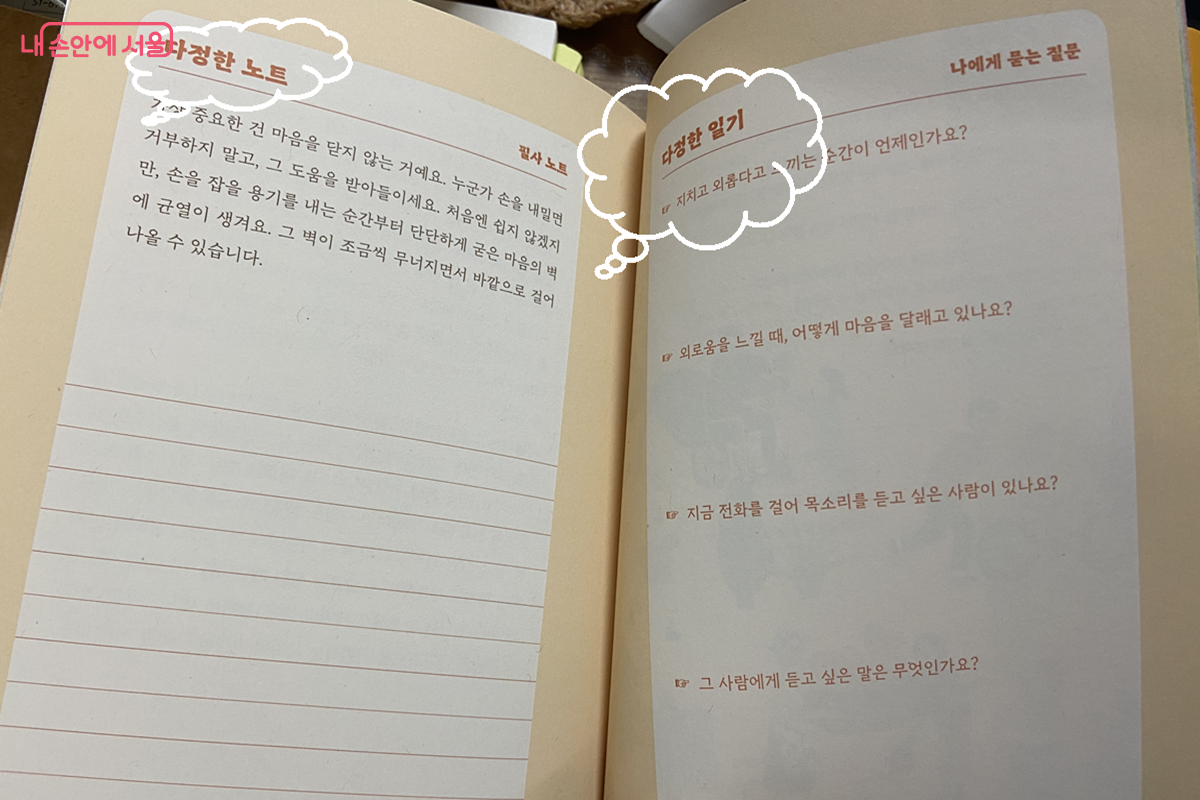 내 손안에 서울
다정한 노트
필사 노트
가장 중요한 건 마음을 닫지 않는 거예요. 누군가 손을 내밀면
거부하지 말고, 그 도움을 받아들이세요. 처음엔 쉽지 않겠지
만, 손을 잡을 용기를 내는 순간부터 단단하게 굳은 마음의 벽
에 균열이 생겨요. 그 벽이 조금씩 무너지면서 바깥으로 걸어
나올 수 있습니다.
나에게 묻는 질문
다정한 일기
☞ 지치고 외롭다고 느끼는 순간이 언제인가요?
☞ 외로움을 느낄 때, 어떻게 마음을 달래고 있나요?
☞ 지금 전화를 걸어 목소리를 듣고 싶은 사람이 있나요?
☞ 그 사람에게 듣고 싶은 말은 무엇인가요?